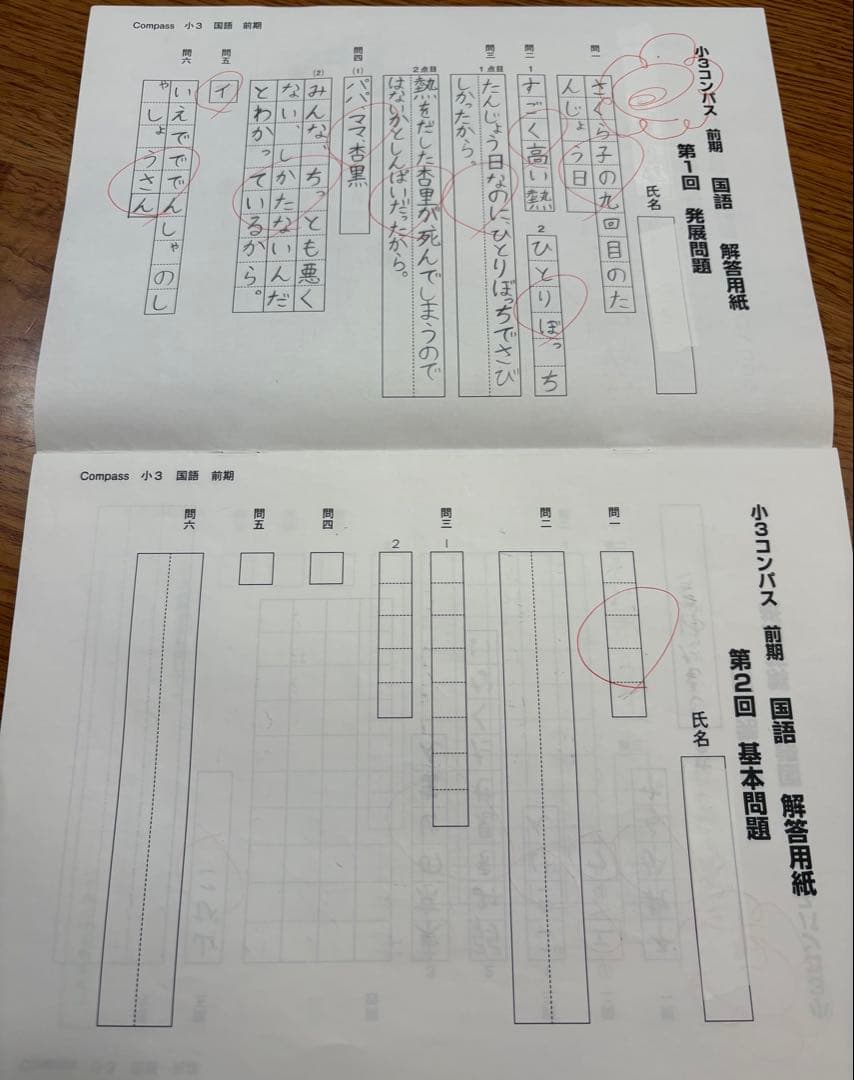 Compass 小3 国語 前期
小3コンパス 前期 国語 解答用紙
第1回 発展問題
氏名
問一
さくら子の九回目のた
んじょう日
問二
1
すごく高い熱
2
ひとりぼっち
問三
1点目
たんじょう日なのに、ひとりぼっちでさび
しかったから。
2点目
熱をだした杏里が死んでしまうので
はないかとしんぱいだったから。
問四
(1)
パパママ杏黒
(2)
みんな、ちっとも悪く
ない、しかたないんだ
とわかっているから。
問五
イ
問六
いえでででんしゃのし
ゃしょうさん
Compass 小3 国語 前期
小3コンパス 前期 国語 解答用紙
第2回 基本問題
氏名
問一
問二
問三
1
2
問四
問五
問六